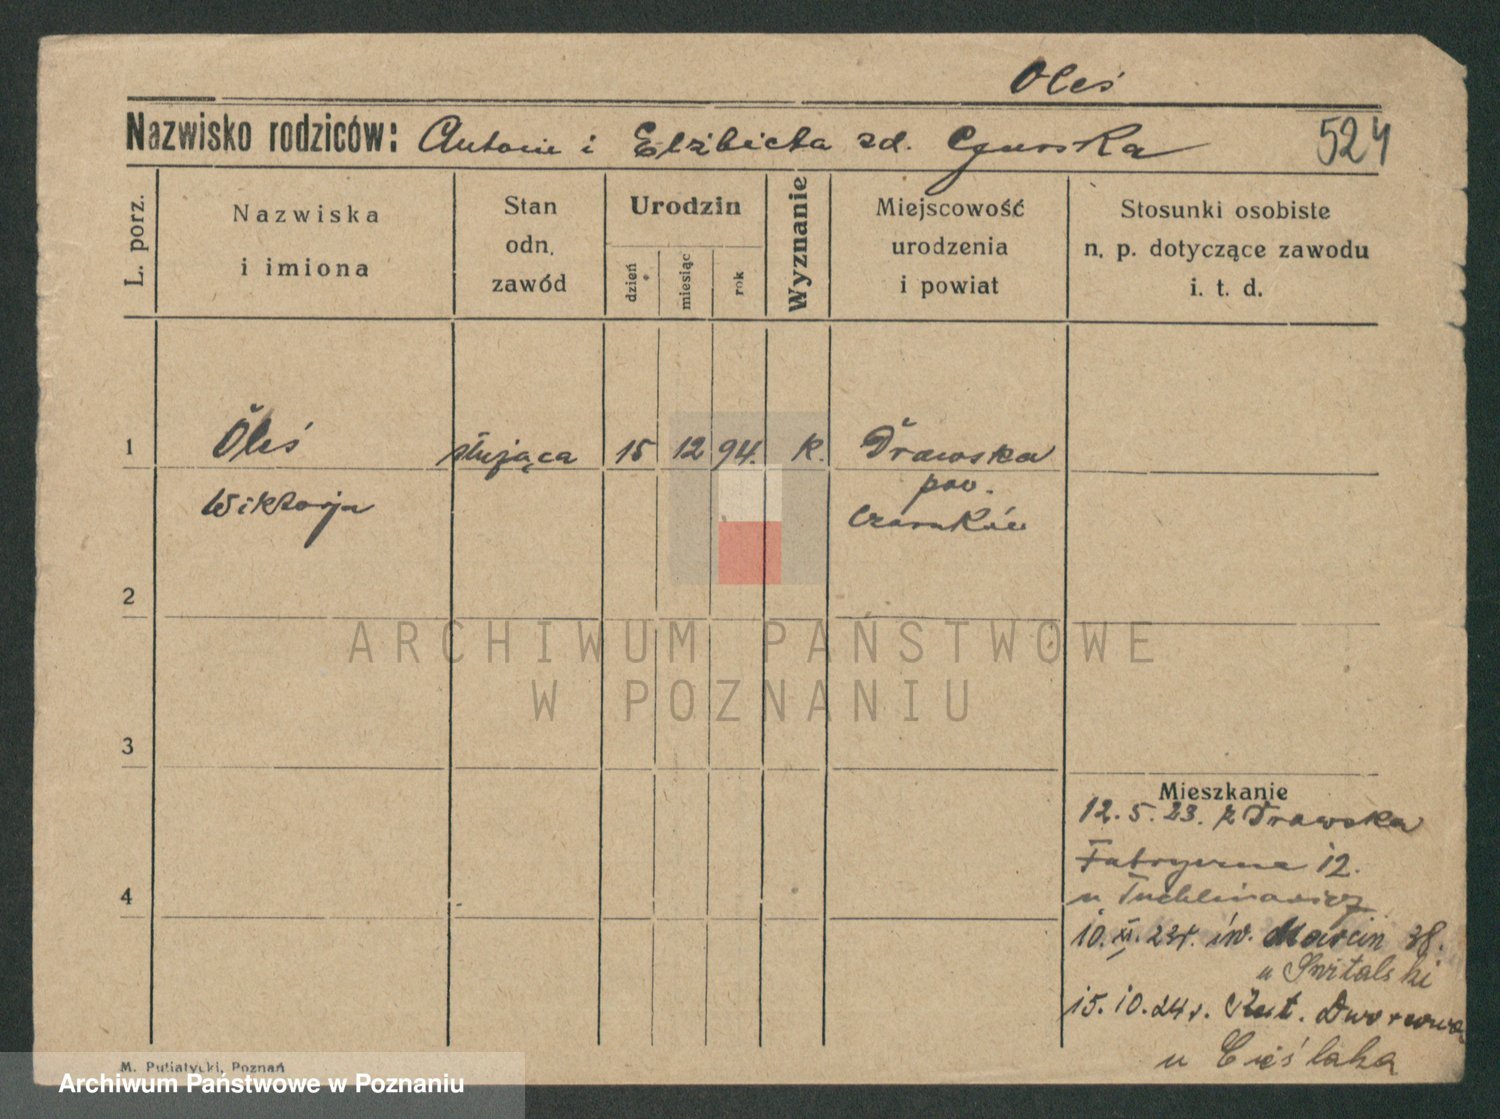 Oleś
Nazwisko rodziców: Antoni i Elżbieta zd. Cgurska
524
L. porz.
Nazwiska
i imiona
Stan
odn.
zawód
Urodzin
dzień
miesiąc
rok
Wyznanie
Miejscowość
urodzenia
i powiat
Stosunki osobiste
n. p. dotyczące zawodu
i. t. d.
1 Oleś służąca 15 12 94. k. Drawska
Wiktorja
pow.
Czarnków
2
3
4
ARCHIWUM PAŃSTWOWE
W POZNANIU
Mieszkanie
12.5.23. z Drawska
Fabryczna 12.
u
10.XI.23r. św. Marcin 38.
u Świtalski
15.10.24r. Dworcowa
u Cieślaka
M. Putiatycki, Poznań
Archiwum Państwowe w Poznaniu